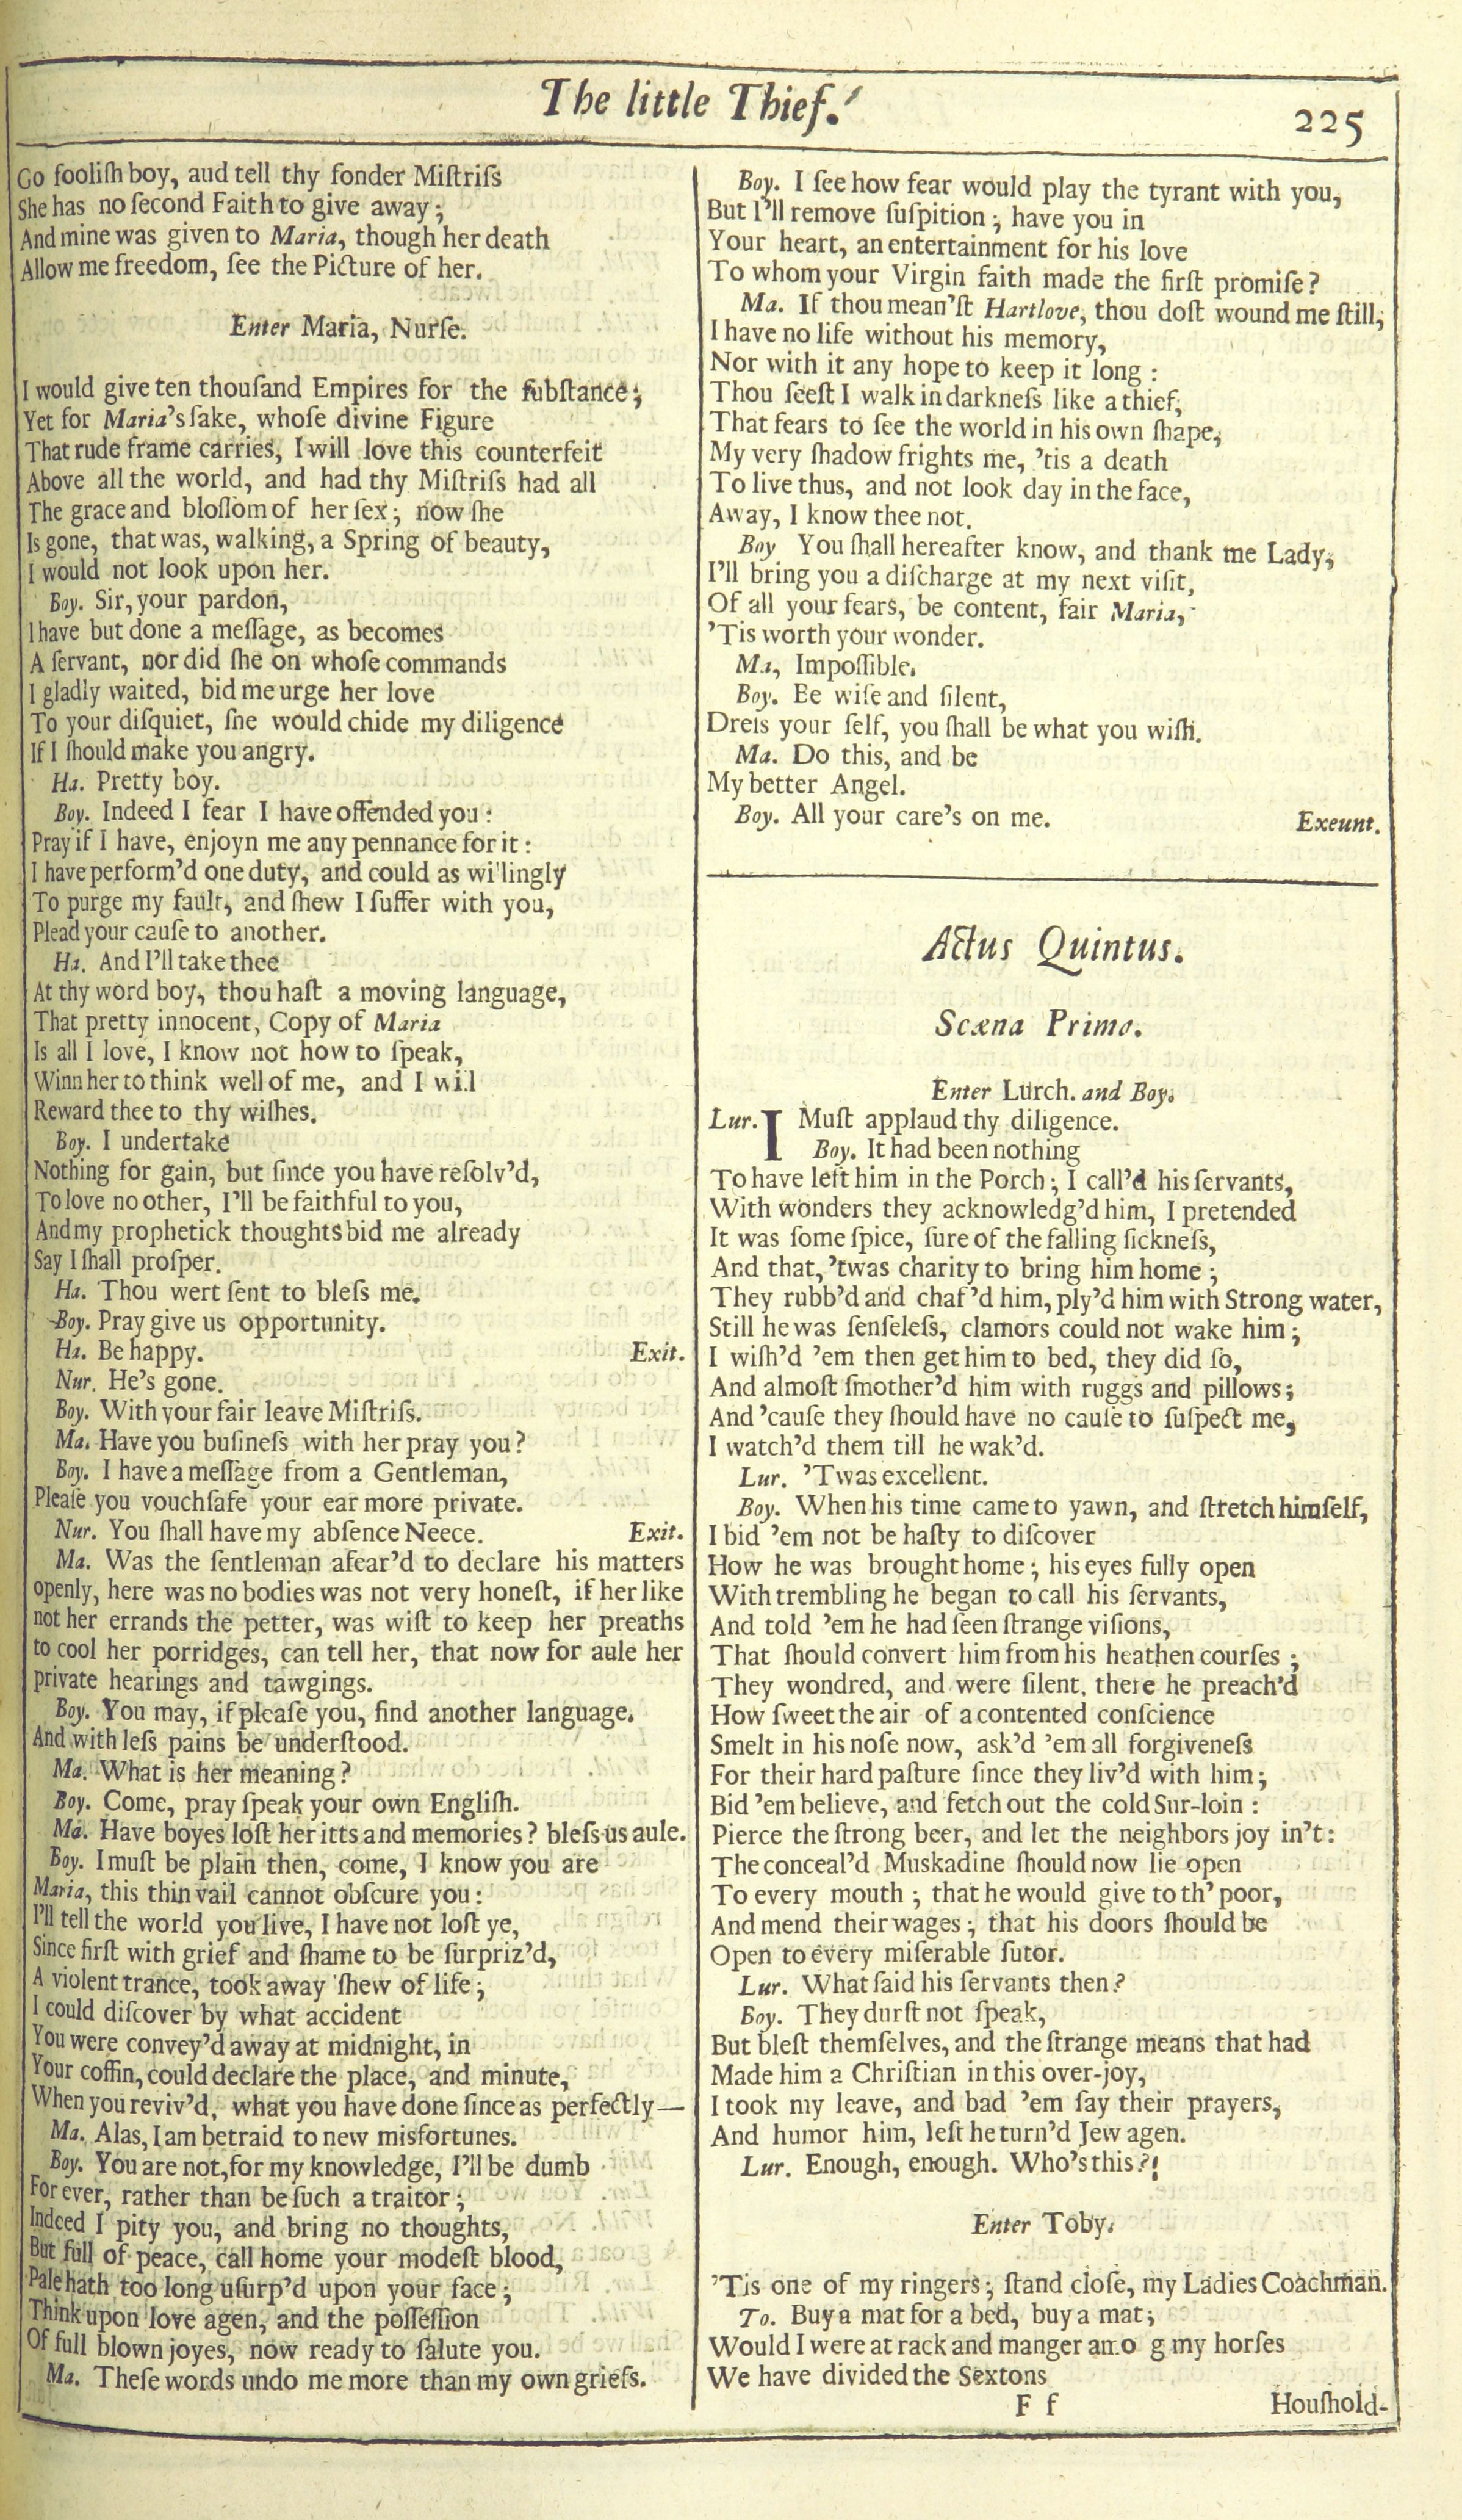 The little Thief.
225
Go fooliſh boy, aud tell thy fonder Miſtriſs
She has no ſecond Faith to give away;
And mine was given to Maria, though her death
Allow me freedom, ſee the Picture of her.
Enter Maria, Nurſe.
I would give ten thouſand Empires for the ſubſtance;
Yet for Maria's ſake, whoſe divine Figure
That rude frame carries, I will love this counterfeit
Above all the world, and had thy Miſtriſs had all
The grace and bloſſom of her ſex; now ſhe
Is gone, that was, walking, a Spring of beauty,
I would not look upon her.
Boy. Sir, your pardon,
I have but done a meſſage, as becomes
A ſervant, nor did ſhe on whoſe commands
I gladly waited, bid me urge her love
To your diſquiet, ſne would chide my diligence
If I ſhould make you angry.
Ha. Pretty boy.
Boy. Indeed I fear I have offended you:
Pray if I have, enjoyn me any pennance for it:
I have perform'd one duty, and could as willingly
To purge my fault, and ſhew I ſuffer with you,
Plead your cauſe to another.
Ha. And I'll take thee
At thy word boy, thou haſt a moving language,
That pretty innocent, Copy of Maria
Is all I love, I know not how to ſpeak,
Winn her to think well of me, and I will
Reward thee to thy wiſhes.
Boy. I undertake
Nothing for gain, but ſince you have reſolv'd,
To love no other, I'll be faithful to you,
And my prophetick thoughts bid me already
Say I ſhall proſper.
Ha. Thou wert ſent to bleſs me.
Boy. Pray give us opportunity.
Ha. Be happy. Exit.
Nur. He's gone.
Boy. With your fair leave Miſtriſs.
Ma. Have you buſineſs with her pray you?
Boy. I have a meſſage from a Gentleman,
Pleaſe you vouchſafe your ear more private.
Nur. You ſhall have my abſence Neece. Exit.
Ma. Was the ſentleman afear'd to declare his matters
openly, here was no bodies was not very honeſt, if her like
not her errands the petter, was wiſt to keep her preaths
to cool her porridges, can tell her, that now for aule her
private hearings and tawgings.
Boy. You may, if pleaſe you, find another language.
And with leſs pains be underſtood.
Ma. What is her meaning?
Boy. Come, pray ſpeak your own Engliſh.
Ma. Have boyes loſt her itts and memories? bleſs us aule.
Boy. I muſt be plain then, come, I know you are
Maria, this thin vail cannot obſcure you:
I'll tell the world you live, I have not loſt ye,
Since firſt with grief and ſhame to be ſurpriz'd,
A violent trance, took away ſhew of life;
I could diſcover by what accident
You were convey'd away at midnight, in
Your coffin, could declare the place, and minute,
When you reviv'd, what you have done ſince as perfectly—
Ma. Alas, I am betraid to new misfortunes.
Boy. You are not, for my knowledge, I'll be dumb
For ever, rather than be ſuch a traitor;
Indeed I pity you, and bring no thoughts,
But full of peace, call home your modeſt blood,
Pale hath too long uſurp'd upon your face;
Think upon love agen, and the poſſeſſion
Of full blown joyes, now ready to ſalute you.
Ma. Theſe words undo me more than my own griefs.
Boy. I ſee how fear would play the tyrant with you,
But I'll remove ſuſpition; have you in
Your heart, an entertainment for his love
To whom your Virgin faith made the firſt promiſe?
Ma. If thou mean'ſt Hartlove, thou doſt wound me ſtill,
I have no life without his memory,
Nor with it any hope to keep it long:
Thou ſeeſt I walk in darkneſs like a thief,
That fears to ſee the world in his own ſhape,
My very ſhadow frights me, 'tis a death
To live thus, and not look day in the face,
Away, I know thee not.
Boy You ſhall hereafter know, and thank me Lady,
I'll bring you a diſcharge at my next viſit,
Of all your fears, be content, fair Maria,
'Tis worth your wonder.
Ma, Impoſſible.
Boy. Ee wiſe and ſilent,
Dreſs your ſelf, you ſhall be what you wiſh.
Ma. Do this, and be
My better Angel.
Boy. All your care's on me. Exeunt.
Actus Quintus.
Scæna Prima.
Enter Lurch. and Boy.
Lur. I Muſt applaud thy diligence.
Boy. It had been nothing
To have left him in the Porch; I call'd his ſervants,
With wonders they acknowledg'd him, I pretended
It was ſome ſpice, ſure of the falling ſickneſs,
And that, 'twas charity to bring him home;
They rubb'd and chaf'd him, ply'd him with Strong water,
Still he was ſenſeleſs, clamors could not wake him;
I wiſh'd 'em then get him to bed, they did ſo,
And almoſt ſmother'd him with ruggs and pillows;
And 'cauſe they ſhould have no cauſe to ſuſpect me,
I watch'd them till he wak'd.
Lur. 'Twas excellent.
Boy. When his time came to yawn, and ſtretch himſelf,
I bid 'em not be haſty to diſcover
How he was brought home; his eyes fully open
With trembling he began to call his ſervants,
And told 'em he had ſeen ſtrange viſions,
That ſhould convert him from his heathen courſes;
They wondred, and were ſilent, there he preach'd
How ſweet the air of a contented conſcience
Smelt in his noſe now, ask'd 'em all forgiveneſs
For their hard paſture ſince they liv'd with him;
Bid 'em believe, and fetch out the cold Sur-loin:
Pierce the ſtrong beer, and let the neighbors joy in't:
The conceal'd Muskadine ſhould now lie open
To every mouth; that he would give to th' poor,
And mend their wages; that his doors ſhould be
Open to every miſerable ſutor.
Lur. What ſaid his ſervants then?
Boy. They durſt not ſpeak,
But bleſt themſelves, and the ſtrange means that had
Made him a Chriſtian in this over-joy,
I took my leave, and bad 'em ſay their prayers,
And humor him, leſt he turn'd Jew agen.
Lur. Enough, enough. Who's this?!
Enter Toby.
'Tis one of my ringers; ſtand cloſe, my Ladies Coachman.
To. Buy a mat for a bed, buy a mat;
Would I were at rack and manger amo g my horſes
We have divided the Sextons
F f Houſhold-